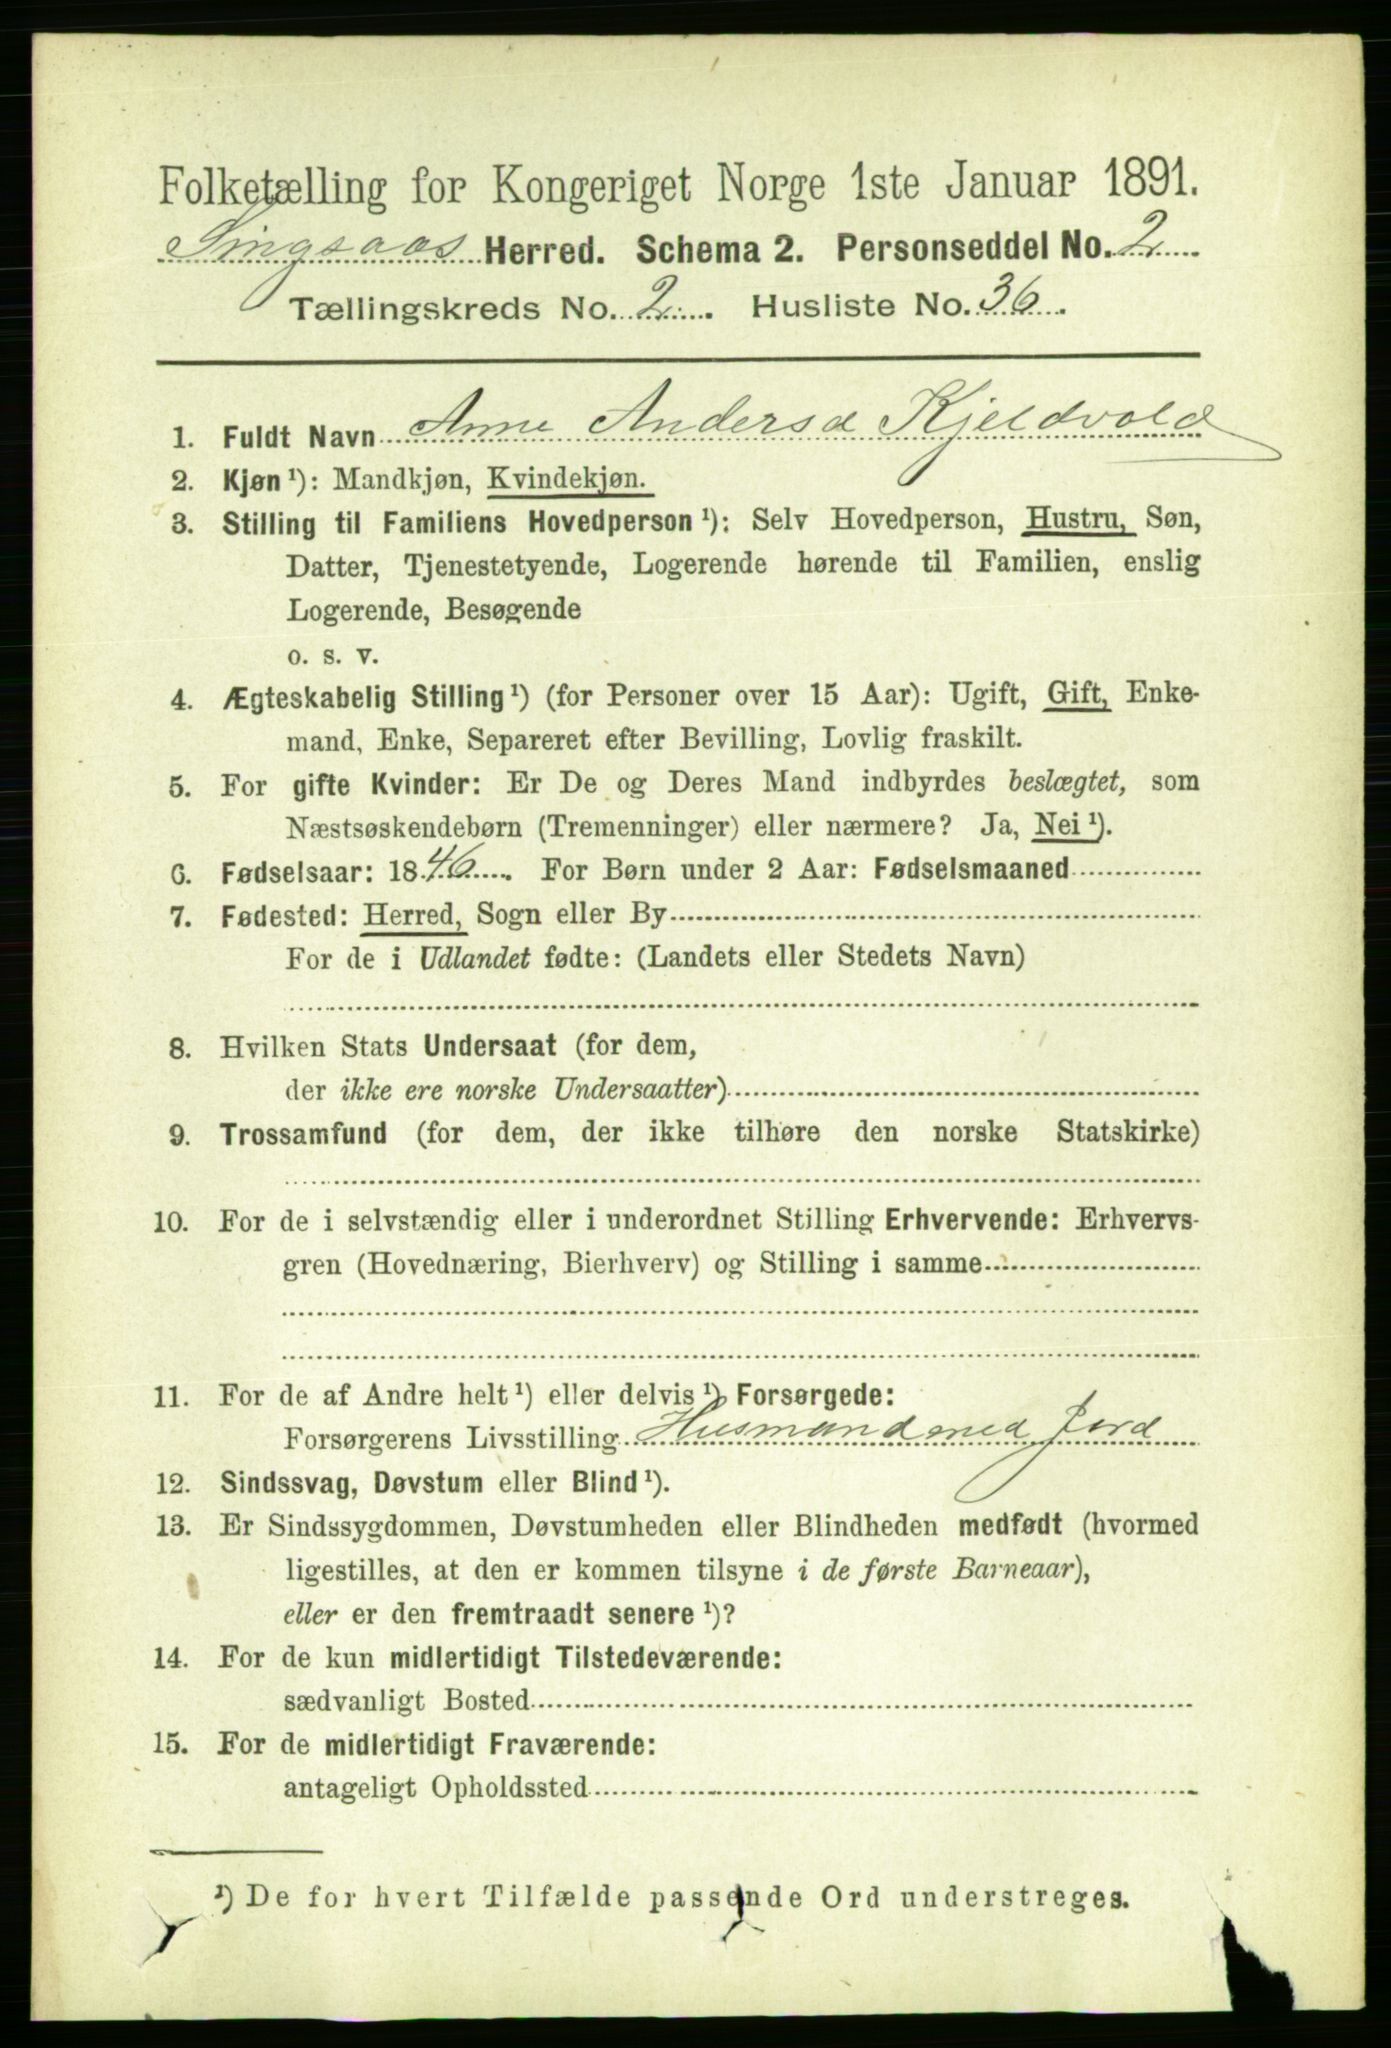 Folketælling for Kongeriget Norge 1ste Januar 1891.
Singsaas Herred. Schema 2. Personseddel No. 2
Tællingskreds No. 2. Husliste No. 36.
1. Fuldt Navn Anne Andersd Kjeldvold
2. Kjøn ¹): Mandkjøn, Kvindekjøn.
3. Stilling til Familiens Hovedperson ¹): Selv Hovedperson, Hustru, Søn,
Datter, Tjenestetyende, Logerende hørende til Familien, enslig
Logerende, Besøgende
o. s. v.
4. Ægteskabelig Stilling ¹) (for Personer over 15 Aar): Ugift, Gift, Enke-
mand, Enke, Separeret efter Bevilling, Lovlig fraskilt.
5. For gifte Kvinder: Er De og Deres Mand indbyrdes beslægtet, som
Næstsøskendebørn (Tremenninger) eller nærmere? Ja, Nei ¹).
6. Fødselsaar: 1846. For Børn under 2 Aar: Fødselsmaaned
7. Fødested: Herred, Sogn eller By
For de i Udlandet fødte: (Landets eller Stedets Navn)
8. Hvilken Stats Undersaat (for dem,
der ikke ere norske Undersaatter)
9. Trossamfund (for dem, der ikke tilhøre den norske Statskirke)
10. For de i selvstændig eller i underordnet Stilling Erhvervende: Erhvervs-
gren (Hovednæring, Bierhverv) og Stilling i samme
11. For de af Andre helt ¹) eller delvis ¹) Forsørgede:
Forsørgerens Livsstilling Husmand med Jord
12. Sindssvag, Døvstum eller Blind ¹).
13. Er Sindssygdommen, Døvstumheden eller Blindheden medfødt (hvormed
ligestilles, at den er kommen tilsyne i de første Barneaar),
eller er den fremtraadt senere ¹)?
14. For de kun midlertidigt Tilstedeværende:
sædvanligt Bosted
15. For de midlertidigt Fraværende:
antageligt Opholdssted
¹) De for hvert Tilfælde passende Ord understreges.